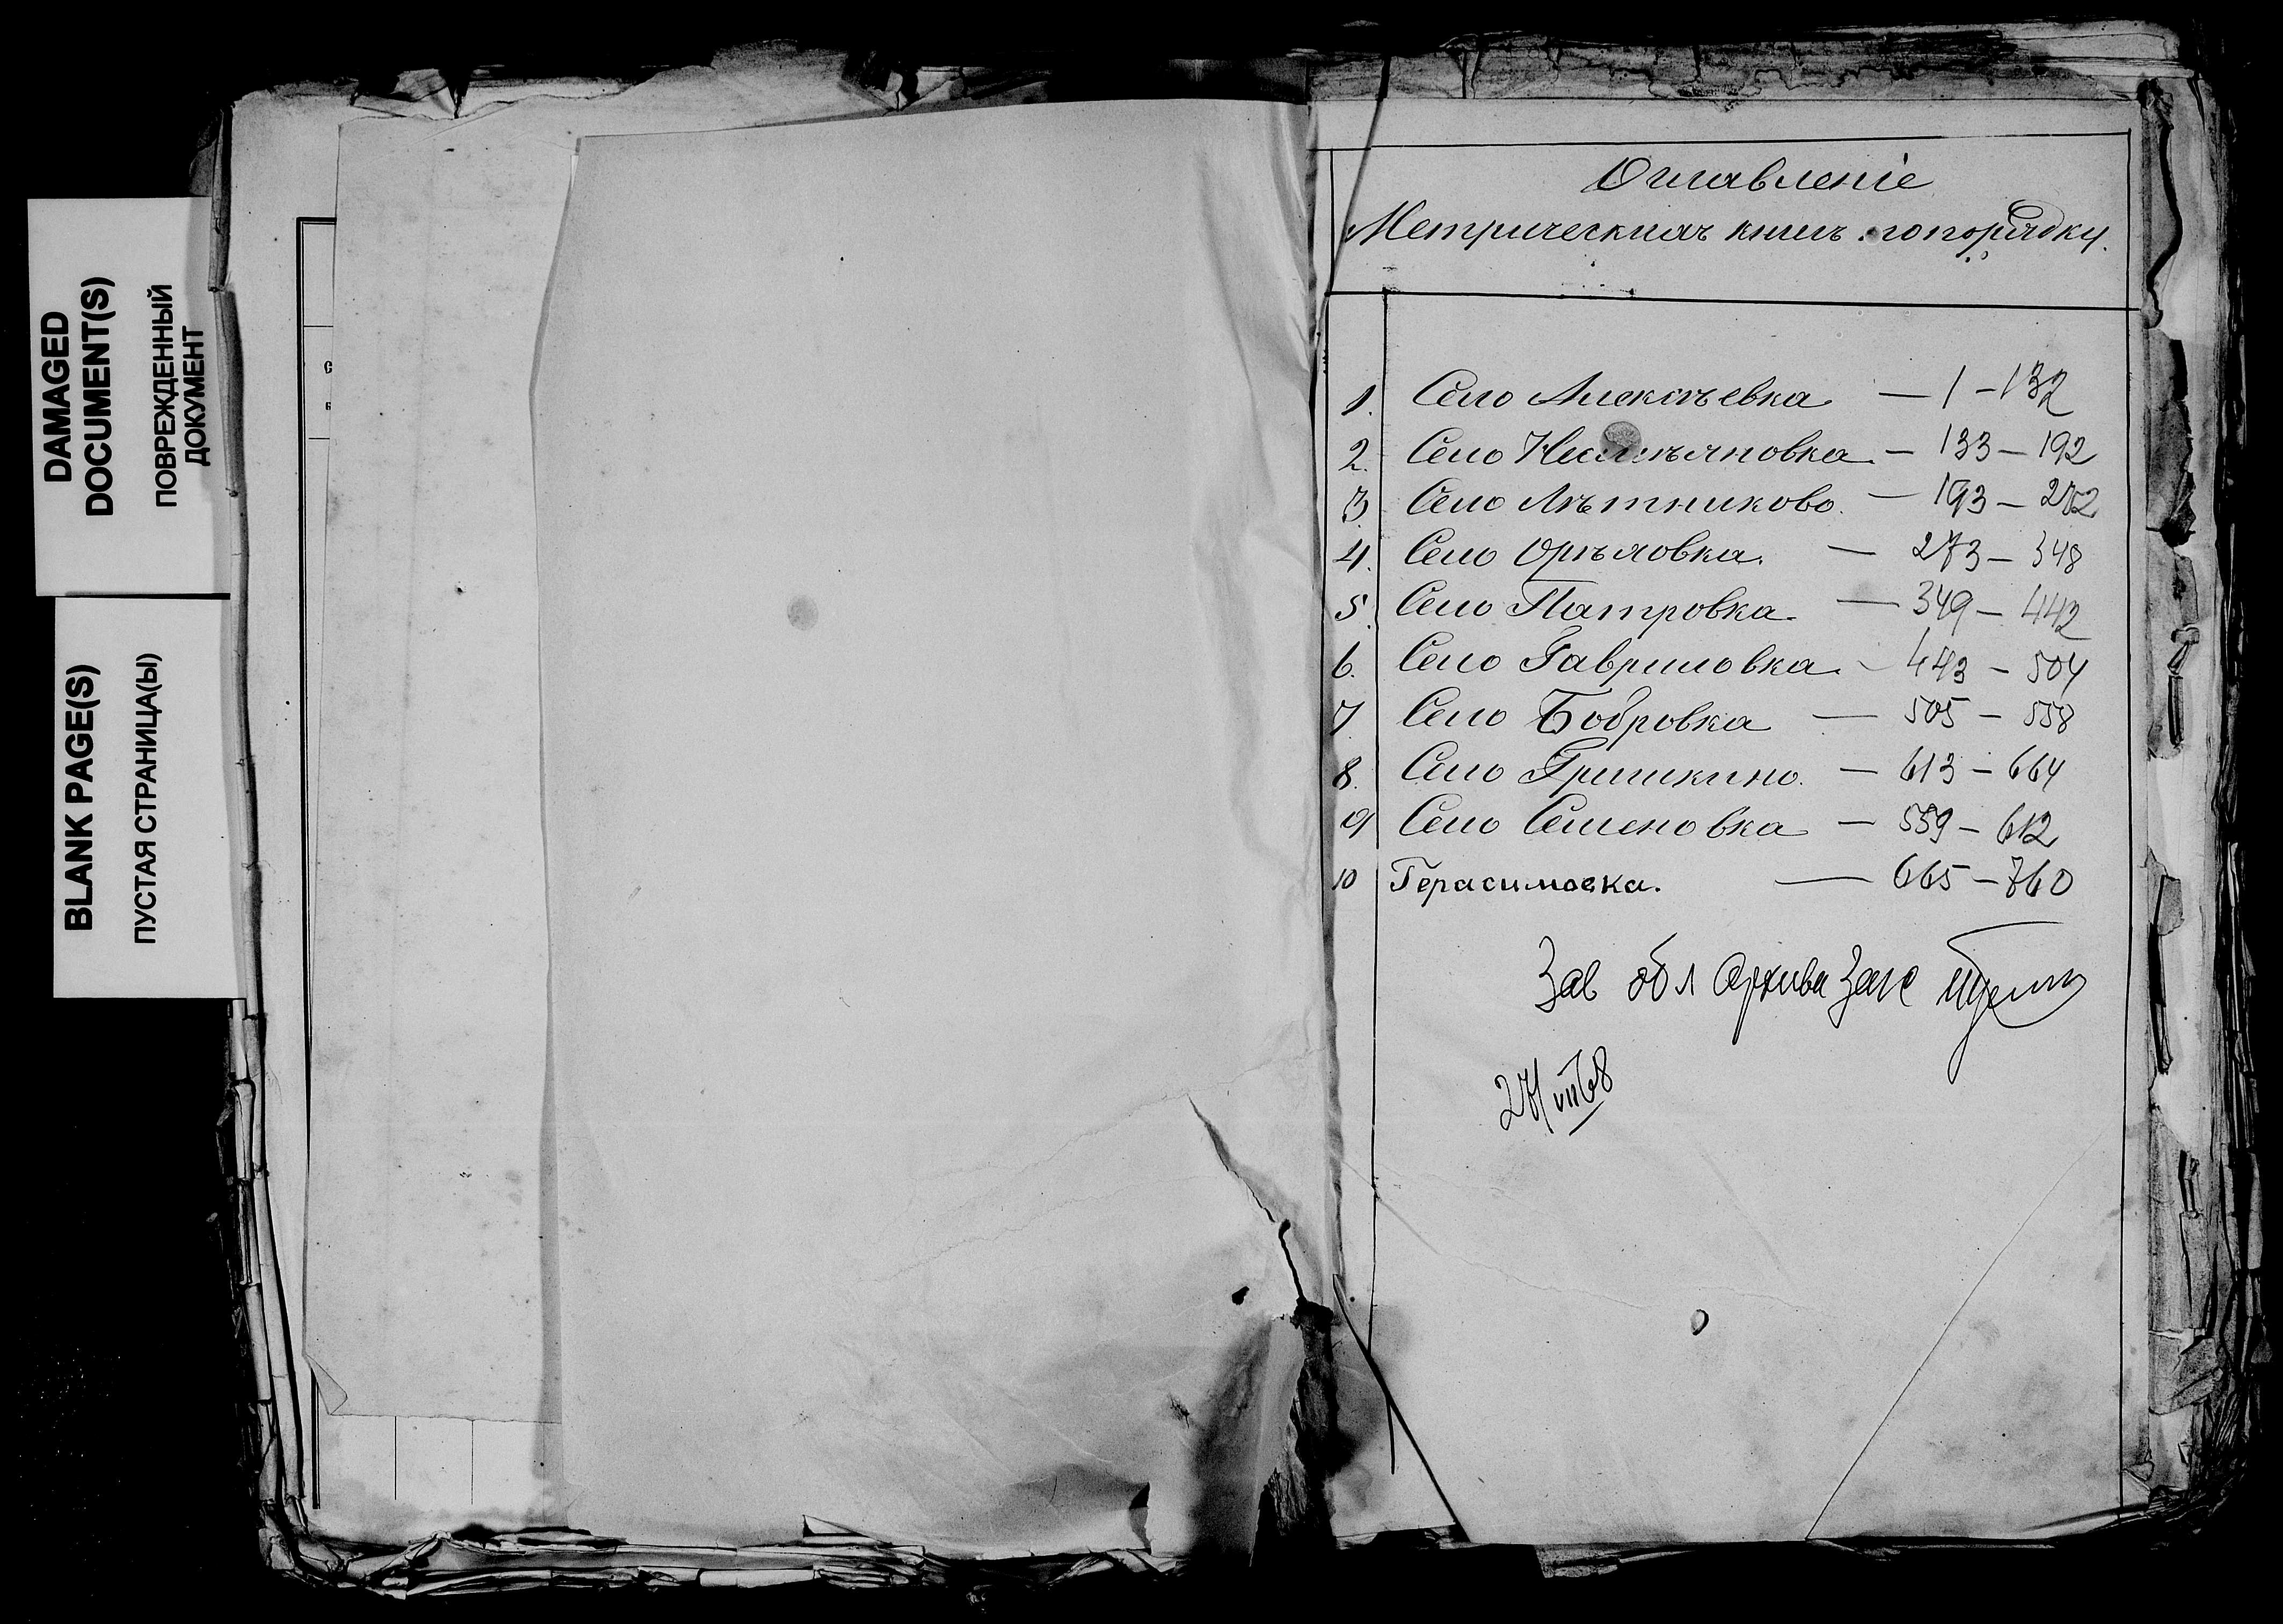 DAMAGED
DOCUMENT(S)
ПОВРЕЖДЕННЫЙ
ДОКУМЕНТ
BLANK PAGE(S)
ПУСТАЯ СТРАНИЦА(Ы)
Оглавленіе
Метрическихъ книгъ попорядку.
1. Село Алексѣевка — 1 – 132
2. Село — 133 – 192
3. Село Лѣтниково. — 193 – 272
4. Село Орѣховка. — 273 – 348
5. Село Патровка. — 349 – 442
6. Село Гавриловка. – 443 – 504
7. Село Бобровка — 505 – 558
8. Село Гришкино. — 613 – 664
9 Село Семеновка — 559 – 612
10 Герасимовка. — 665 – 760
Зав обл Архива Загс
27/VII 68